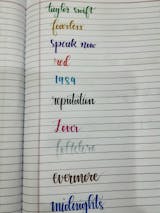 taylor swift
fearless
speak now
red
1989
reputation
Lover
folklore
evermore
midnights